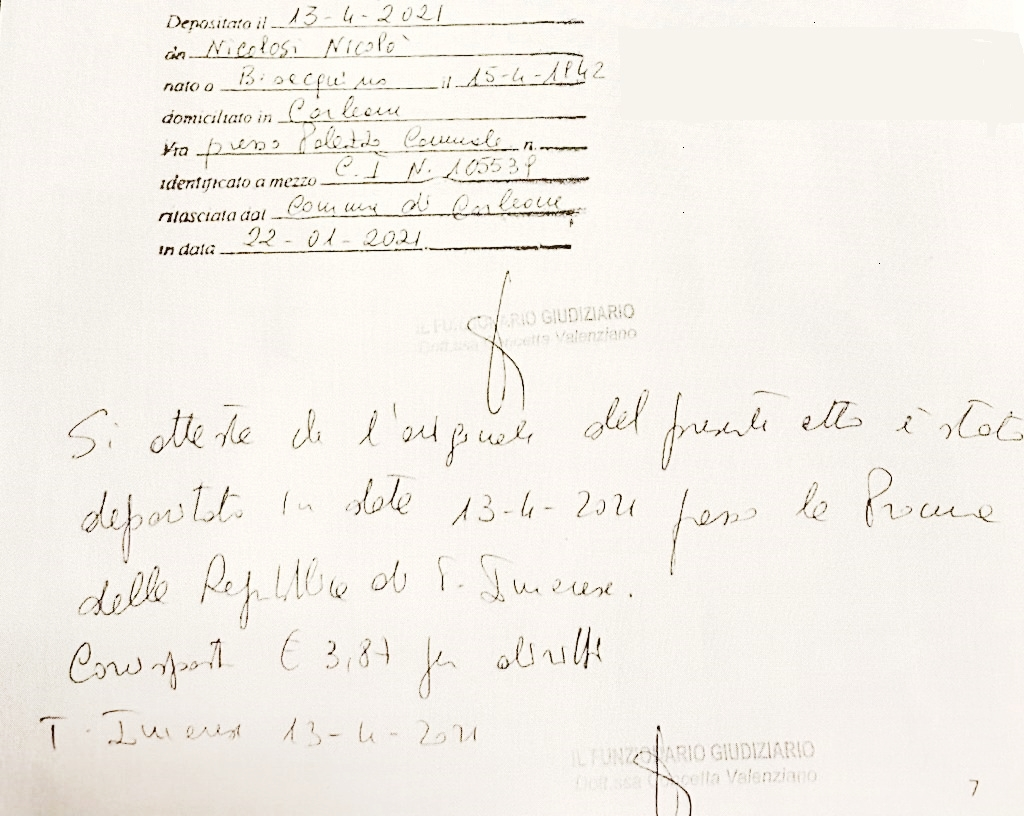 Depositato il 13-4-2021
da Nicolosi Nicolò
nato a Bisacquino il 15-4-1942
domiciliato in Corleone
Via presso Palazzo Comunale n.
identificato a mezzo C.I N. 105539
rilasciata dal Comune di Corleone
in data 22-01-2021
IL FUNZIONARIO GIUDIZIARIO
Dott.ssa Concetta Valenziano
Si atteste che l'originale del presente atto è stato
depositato in data 13-4-2021 presso la Procura
della Repubblica di T. Imerese.
Corrisposti € 3,87 per diritti
T. Imerese 13-4-2021
IL FUNZIONARIO GIUDIZIARIO
Dott.ssa Concetta Valenziano
7